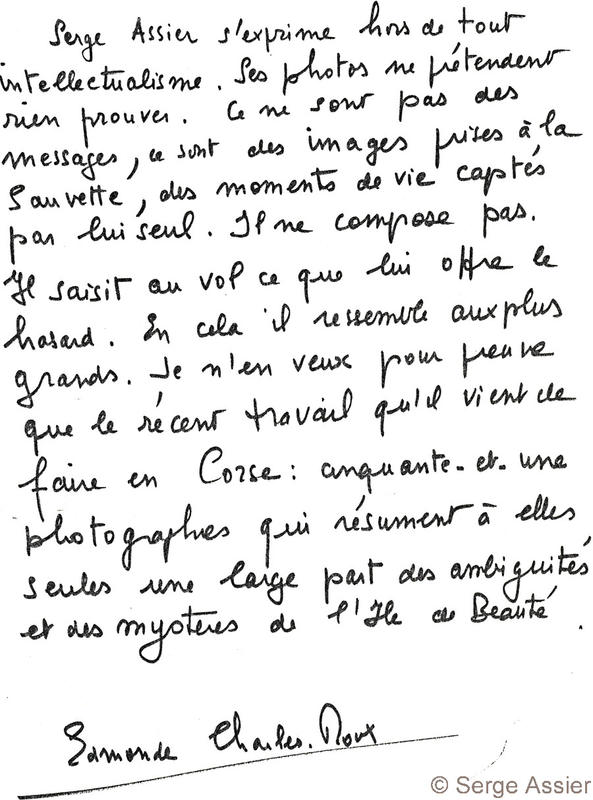 Serge Assier s'exprime hors de tout
intellectualisme. Ses photos ne prétendent
rien prouver. Ce ne sont pas des
messages, ce sont des images prises à la
Sauvette, des moments de vie captés
par lui seul. Il ne compose pas.
Il saisit au vol ce que lui offre le
hasard. En cela il ressemble aux plus
grands. Je n'en veux pour preuve
que le récent travail qu'il vient de
faire en Corse : cinquante-et-une
photographies qui résument à elles
seules une large part des ambiguités
et des mystères de l'Ile de Beauté.
Edmonde Charles-Roux
© Serge Assier